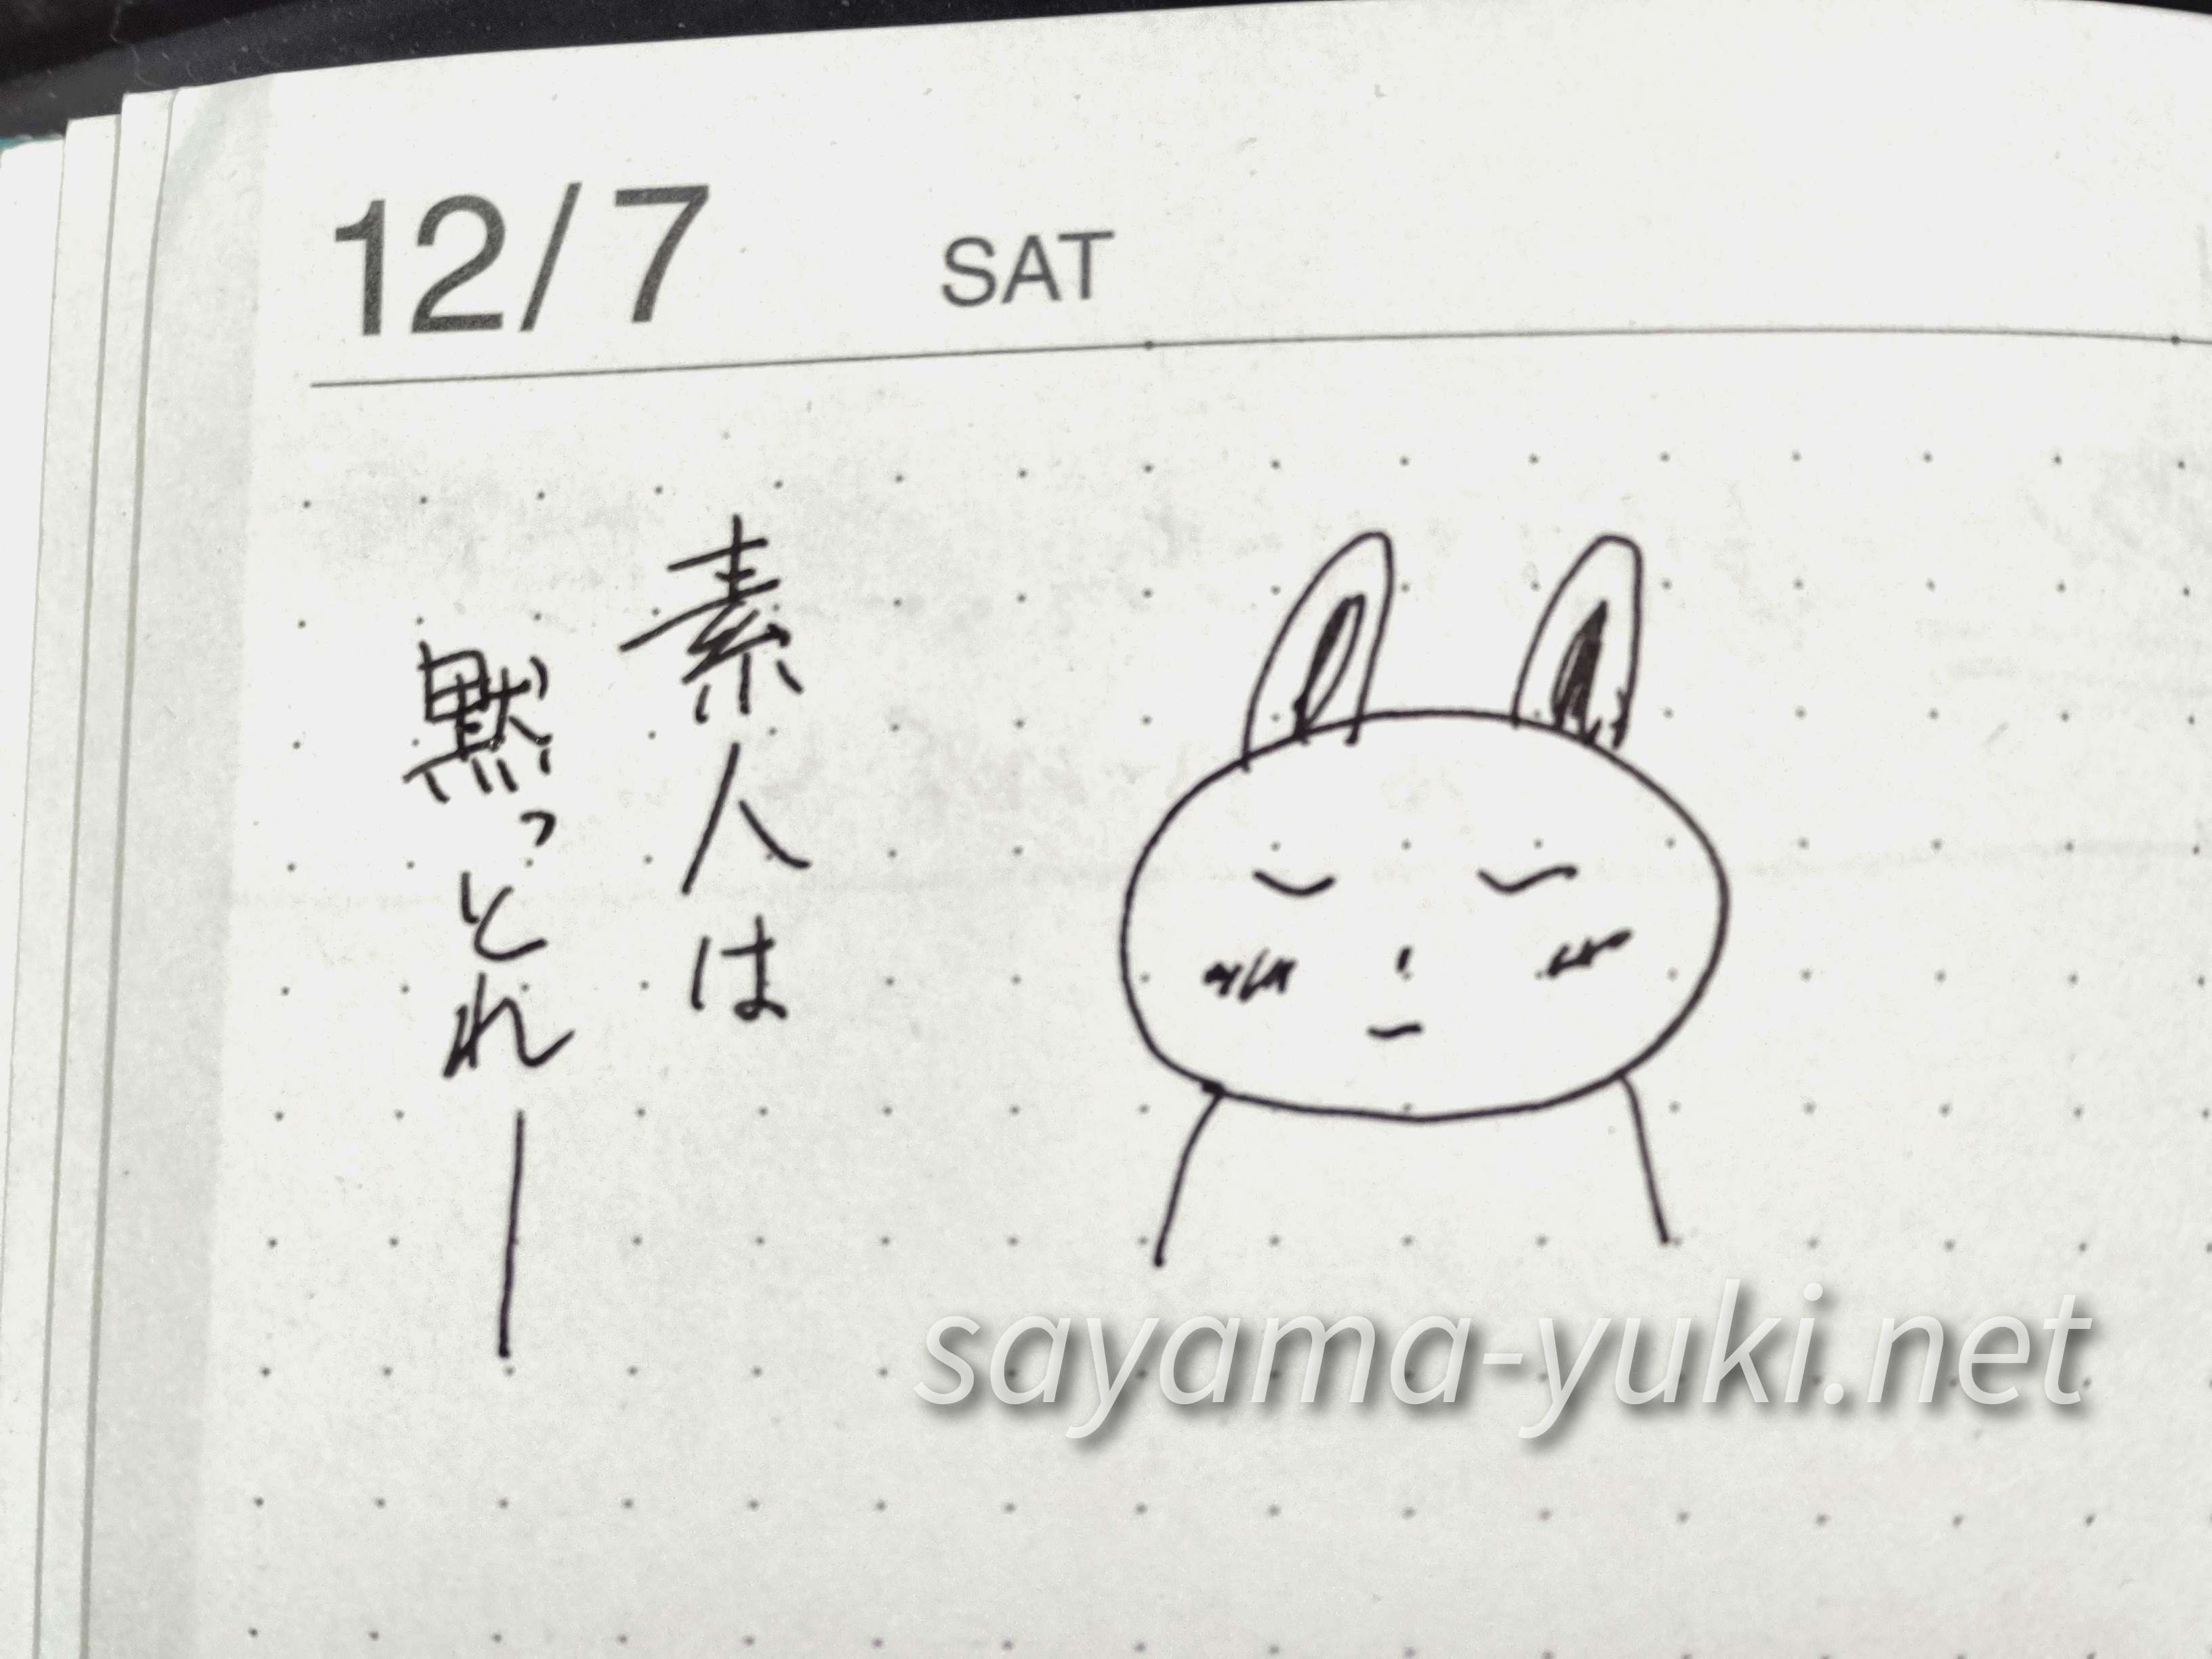 12/7 SAT
素人は
黙っとれ—
sayama-yuki.net